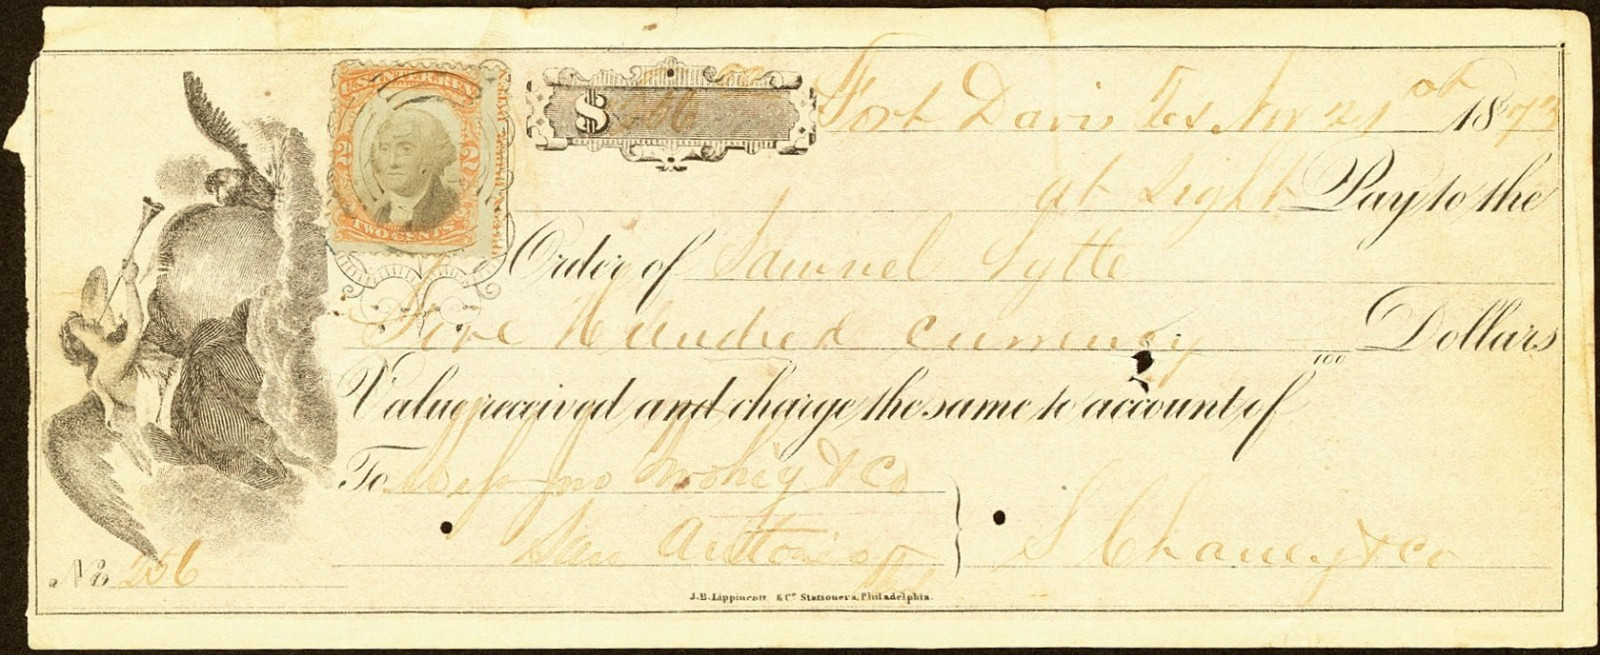 U.S. INTER. REV.
2 2
TWO CENTS
$ 256 00 Fort Davis Tex Nov 21 1873
at sight Pay to the
Order of Samuel Lytle
Five Hundred Currency 100 Dollars
Value received and charge the same to account of
To & Co
San Antonio
S Chaney & Co
No 256
J.B. Lippincott & Co. Stationers, Philadelphia.